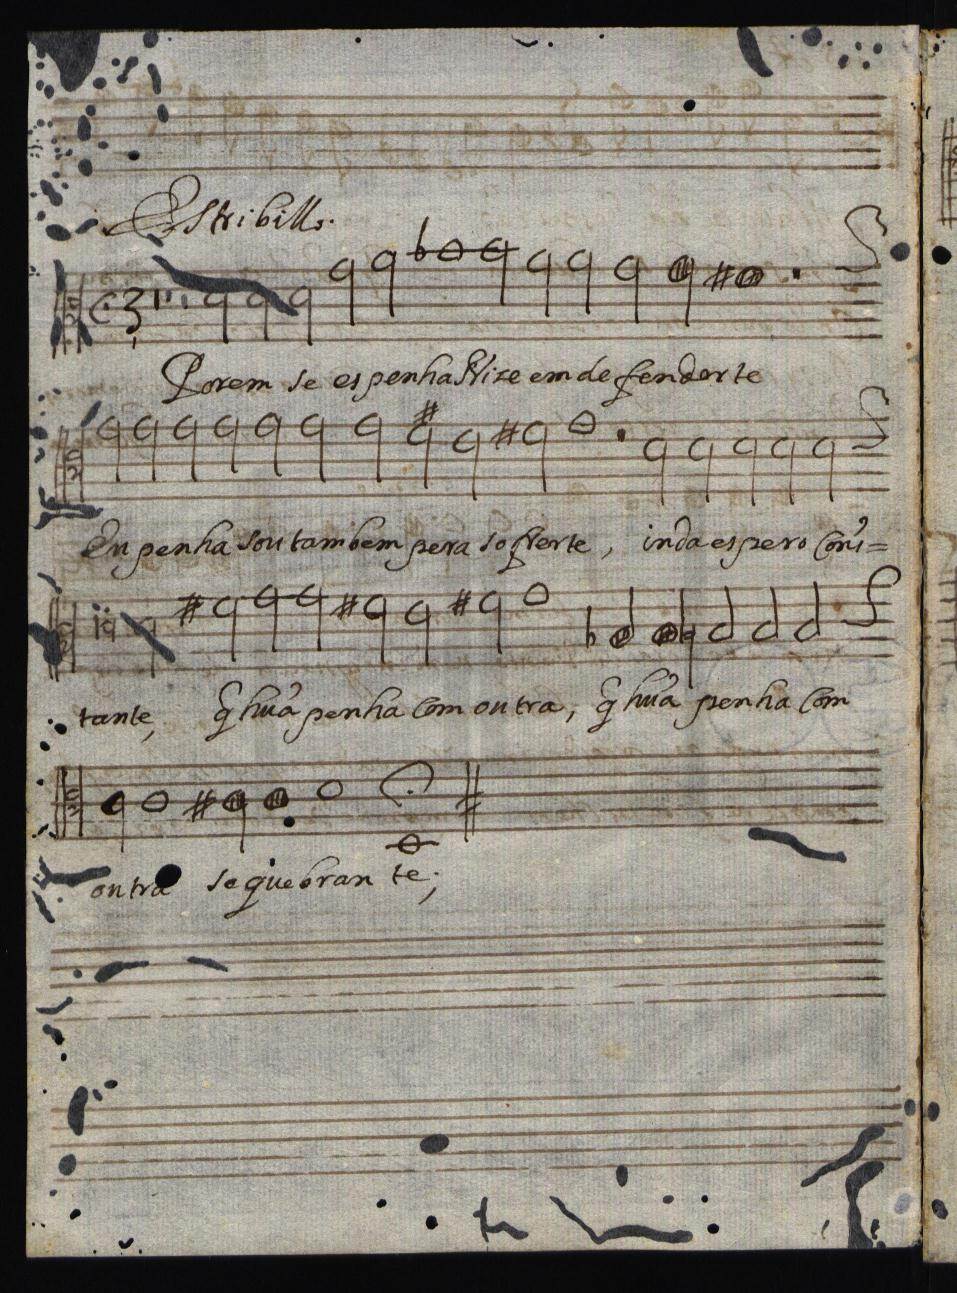 Estribillo.
Porem se espenha Nize em defenderte
Enpenha sou tambem pera soffrerte, inda espero Cons=
tante, q̃ huã penha Com outra, q̃ huã penha Com
outra se quebrante;